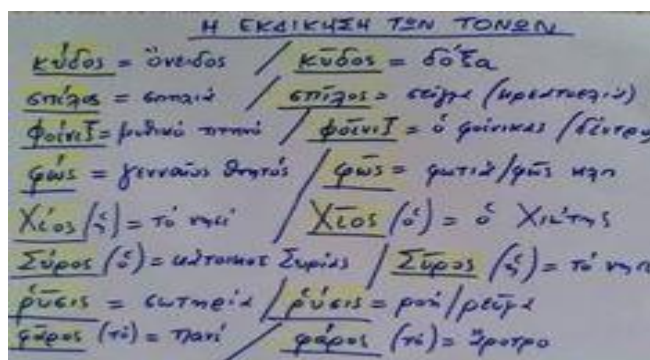 Η ΕΚΔΙΚΗΣΗ ΤΩΝ ΤΟΝΩΝ
κύδος = ὄνειδος / κῦδος = δόξα
σπίλος = σπηλιά / σπῖλος = στίγμα (κρεατοελιά)
φοίνιξ = μυθικό πτηνό / φοῖνιξ = ὁ φοίνικας (δέντρο
φώς = γενναῖος θνητός / φῶς = φωτιά/φῶς κλπ
Χίος (ἡ) = τό νησί / Χῖος (ὁ) = ὁ Χιώτης
Σύρος (ὁ) = κάτοικος Συρίας / Σῦρος (ἡ) = τό νησί
ῥῦσις = σωτηρία / ῥύσις = ροή/ρεῦμα
φᾶρος (τό) = πανί / φάρος (τό) = ἄροτρο